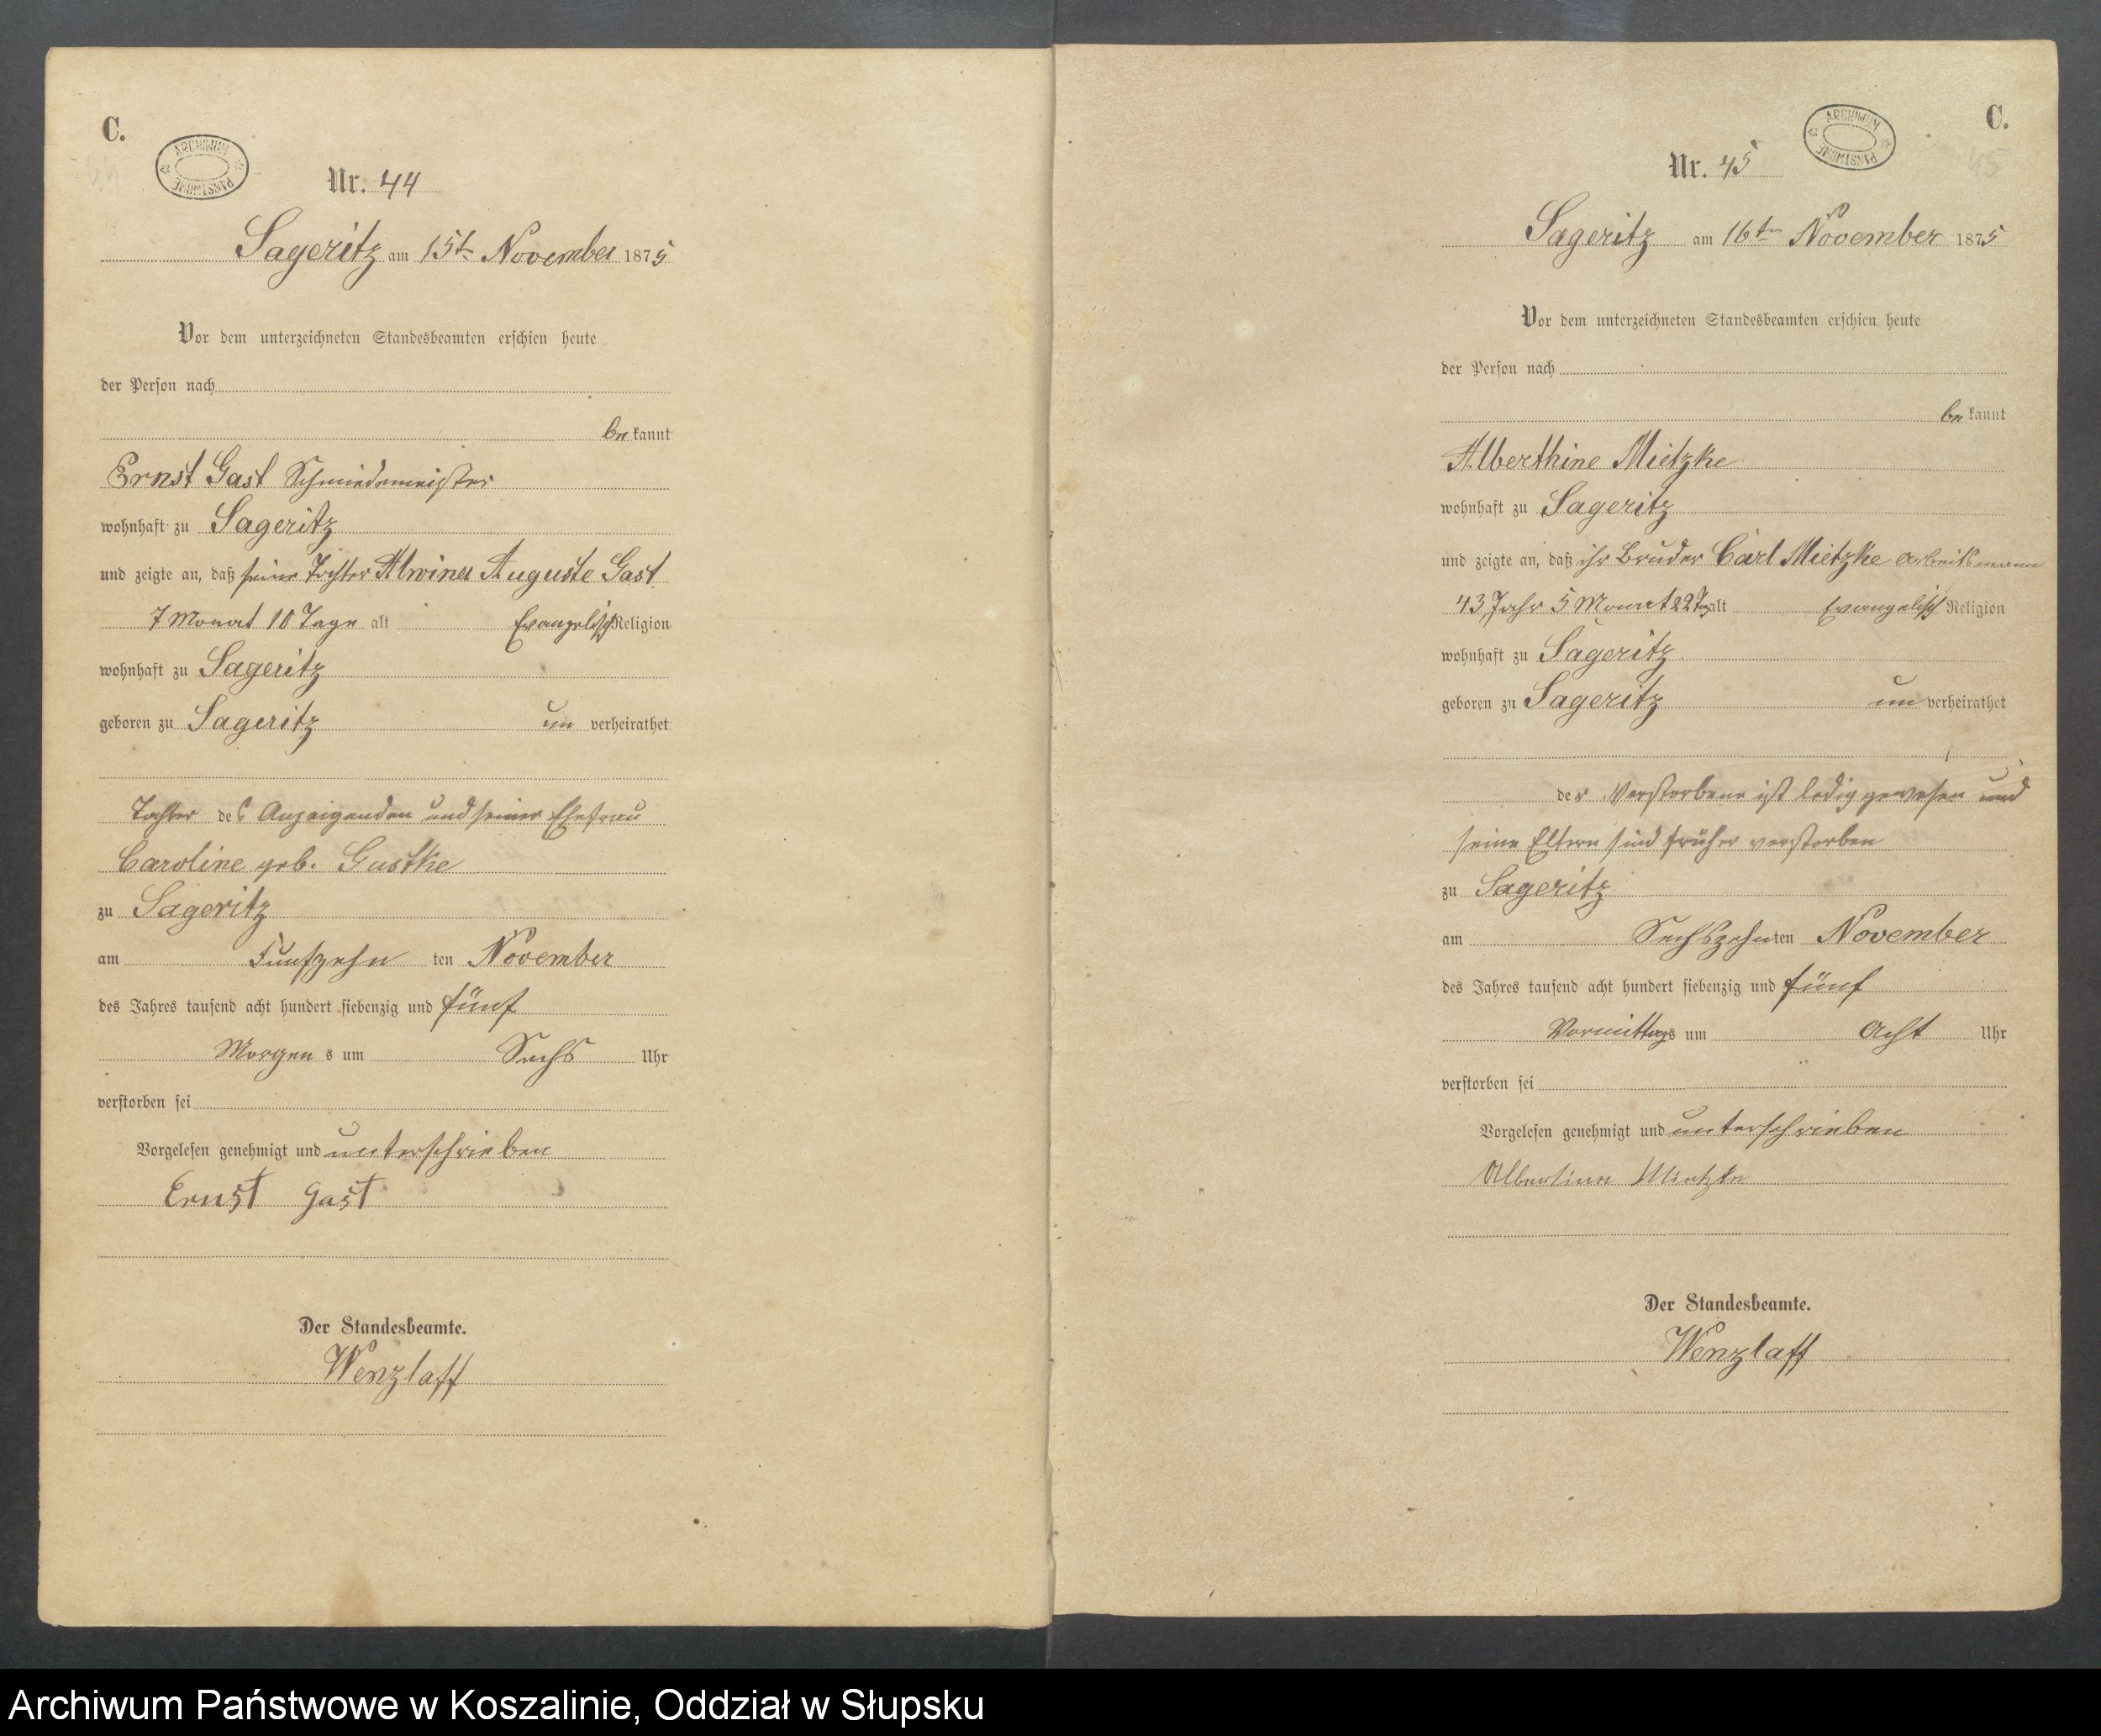 C.
ARCHIWUM PAŃSTWOWE
Nr. 44
Sageritz am 15t November 1875
Vor dem unterzeichneten Standesbeamten erschien heute
der Person nach
be kannt
Ernst Gast Schmiedemeister
wohnhaft zu Sageritz
und zeigte an, daß seine Tochter Alwine Auguste Gast
7 Monat 10 Tage alt Evangelisch Religion
wohnhaft zu Sageritz
geboren zu Sageritz un verheirathet
Tochter des Anzeigenden und seiner Ehefrau
Caroline geb. Gustke
zu Sageritz
am Funfzehn ten November
des Jahres tausend acht hundert siebenzig und fünf
Morgen s um Sechs Uhr
verstorben sei
Vorgelesen genehmigt und unterschrieben
Ernst Gast
Der Standesbeamte.
Wenzlaff
C.
ARCHIWUM PAŃSTWOWE
45
Nr. 45
Sageritz am 16ten November 1875
Vor dem unterzeichneten Standesbeamten erschien heute
der Person nach
be kannt
Alberthine Mietzke
wohnhaft zu Sageritz
und zeigte an, daß ihr Bruder Carl Mietzke Arbeitsmann
43 Jahr 5 Monat 22 Tag alt Evangelisch Religion
wohnhaft zu Sageritz
geboren zu Sageritz un verheirathet
der Verstorbene ist ledig gewesen und
seine Eltern sind früher verstorben
zu Sageritz
am Sechszehn ten November
des Jahres tausend acht hundert siebenzig und fünf
Vormittags um Acht Uhr
verstorben sei
Vorgelesen genehmigt und unterschrieben
Albertine Mietzke
Der Standesbeamte.
Wenzlaff
Archiwum Państwowe w Koszalinie, Oddział w Słupsku